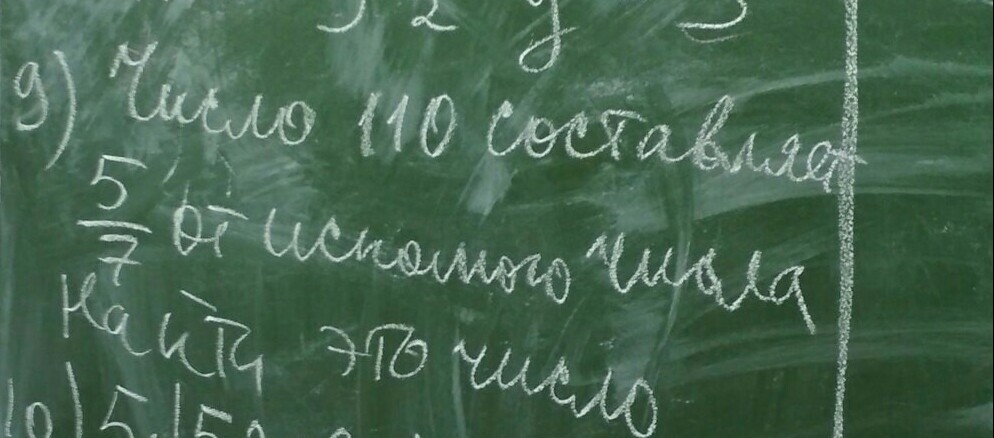 9) Число 110 составляет
5/7 от искомого числа
Найти это число